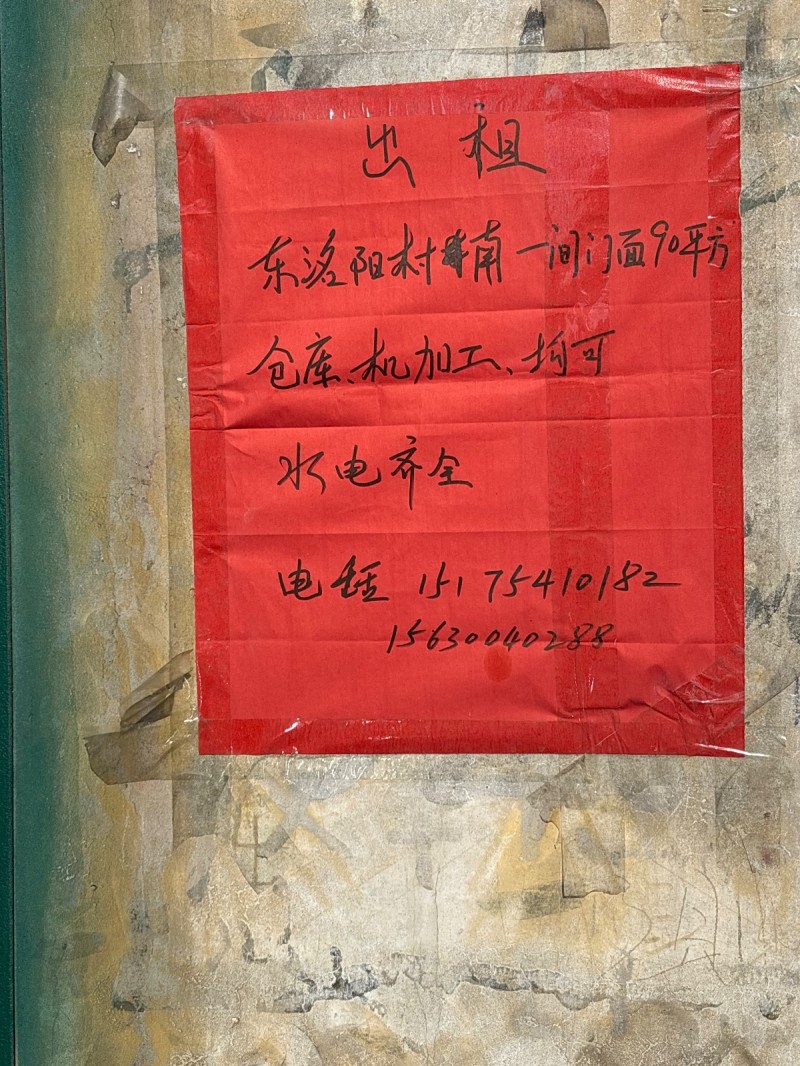 出租
东洛阳村南一间门面90平方
仓库、机加工、均可
水电齐全
电话 15175410182
15630040288